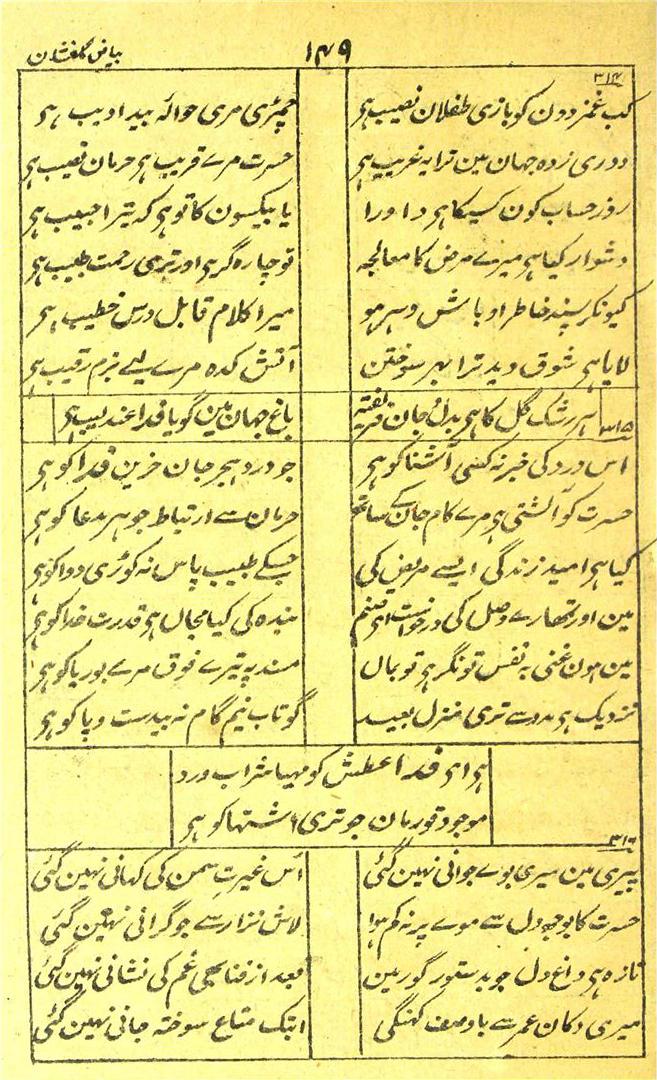 بیاض گلفشان
۱۴۹
۳۱۴
کب غمزدون کو بازی طفلان نصیب ہی
چمڑی مری حوالۂ بید ادیب ہی
دوری زدہ جہان مین ترا یہ غریب ہی
حسرت مرے قریب ہی حرمان نصیب ہی
روز حساب کون کسیکا ہی داورا
یا بیکسون کا تو ہی کہ تیرا حبیب ہی
دشوار کیا ہی میرے مرض کا معالجہ
تو چارہ گر ہی اور تری رحمت طبیب ہی
کیونکر پسند خاطر اوباش دہر ہو
میرا کلام قابل درس خطیب ہی
لایا ہی شوق دید ترا بہر سوختن
آتش کدہ مرے لیے بزم رقیب ہی
ہر رشک گل کا ہی بدل جان فریفتہ
باغ جہان مین گویا فدا عندلیب ہی
۳۱۵
اس درد کی خبر نہ کسی آشنا کو ہی
جو درد ہجر جان حزین فدا کو ہی
حسرت کو آشتی ہی مرے کام جان کے ساتھ
حرمان سے ارتباط جو ہر مدعا کو ہی
کیا ہی امید زندگی ایسے مریض کی
جسکے طبیب پاس نہ کوڑی دوا کو ہی
مین اور تمھارے وصل کی درخواست ای صنم
بندہ کی کیا مجال ہی قدرت خدا کو ہی
مین ہون غنی بہ نفس تونگر ہی تو بمال
مسند پہ تیرے فوق مرے بوریا کو ہی
نزدیک ہی مدد سے تری منزل بعید
گو تاب نیم گام نہ بیدست و پا کو ہی
ہی ای فدا عطش کو مہیا شراب درد
موجود قورمان جو تری اشتہا کو ہی
۳۱۶
پیری مین میری بوے جوانی نہین گئی
اس غیرت سمن کی کہانی نہین گئی
حسرت کا بوجھ دل سے موے پر نہ کم ہوا
لاش نزار سے جو گرانی نہین گئی
تازہ ہی داغ دل جو بدستور گور مین
بعد از فنا بھی غم کی نشانی نہین گئی
میری دکان عمر سے باوصف کہنگی
ابتک متاع سوختہ جانی نہین گئی